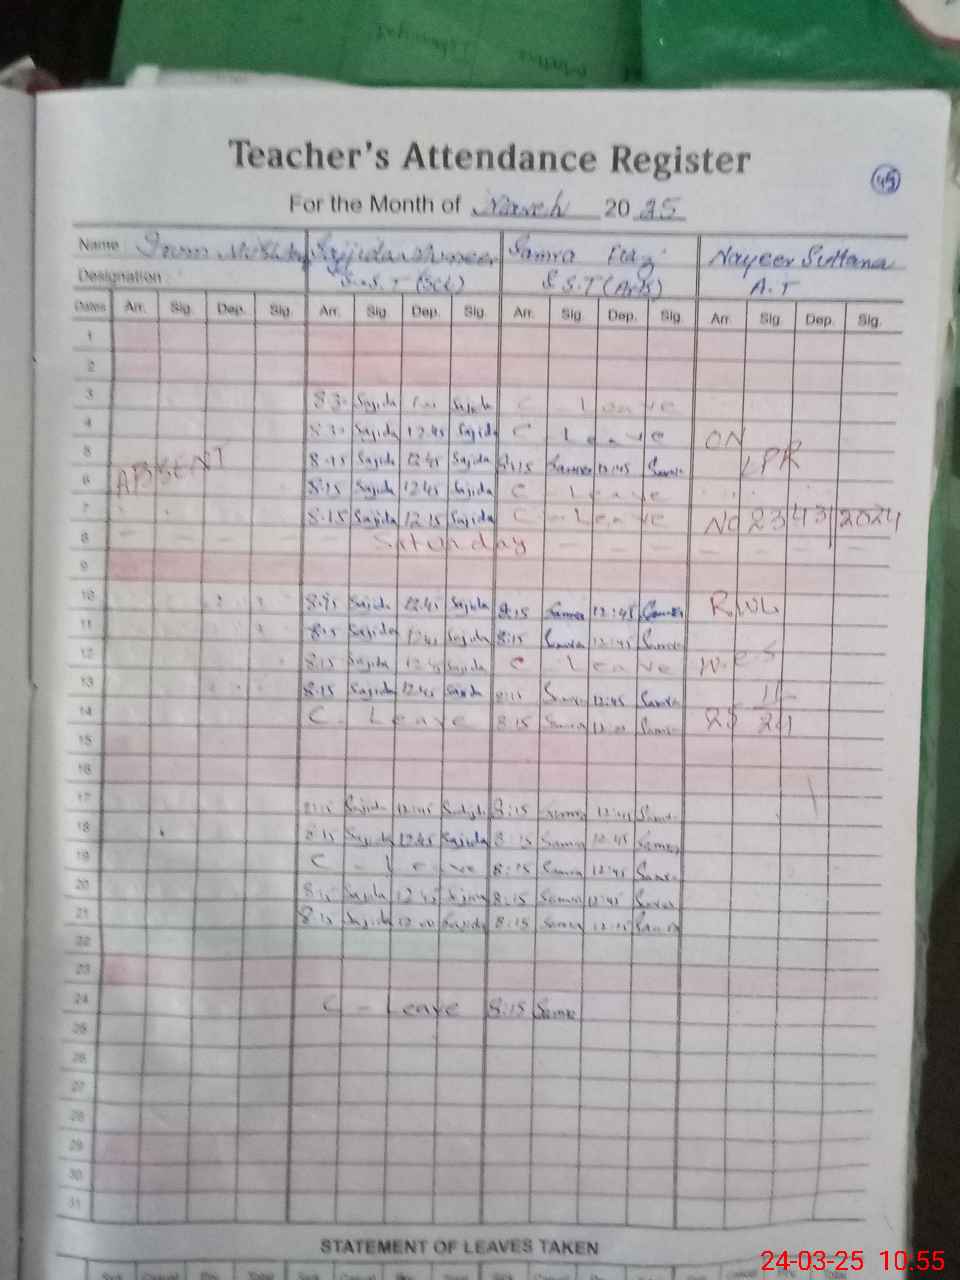 Teacher's Attendance Register
45
For the Month of March 2025
Name Sajida Muneer Samra Nayeer Sultana
Designation S.S.T (Sci) S.S.T (Arts) A.T
Dates Arr. Sig. Dep. Sig. Arr. Sig. Dep. Sig. Arr. Sig. Dep. Sig. Arr. Sig. Dep. Sig.
1
2
3 8.30 Sajida Sajida C - Leave
4 8.30 Sajida 12.45 Sajida C - Leave ON
5 8.15 Sajida 12.45 Sajida 8:15 Samra 12:45 Samra LPR
6 ABSENT 8.15 Sajida 12.45 Sajida C - Leave
7 8.15 Sajida 12.15 Sajida C - Leave No 2343/2024
8 Saturday
9
10 8.15 Sajida 12.45 Sajida 8:15 Samra 12:45 Samra RWL
11 8.15 Sajida 12.45 Sajida 8:15 Samra 12:45 Samra
12 8.15 Sajida 12.45 Sajida C Leave w.e.f
13 8.15 Sajida 12.45 Sajida 8:15 Samra 12:45 Samra 11-
14 C - Leave 8:15 Samra Samra 24
15
16
17 8.15 Sajida 12.45 Sajida 8:15 Samra 12:45 Samra
18 8.15 Sajida 12.45 Sajida 8:15 Samra 12:45 Samra
19 C - Leave 8:15 Samra 12:45 Samra
20 8.15 Sajida 12.45 Sajida 8:15 Samra 12:45 Samra
21 8.15 Sajida 12.00 Sajida 8:15 Samra 12:15 Samra
22
23
24 C - Leave 8:15 Samra
25
26
27
28
29
30
31
STATEMENT OF LEAVES TAKEN
24-03-25 10.55